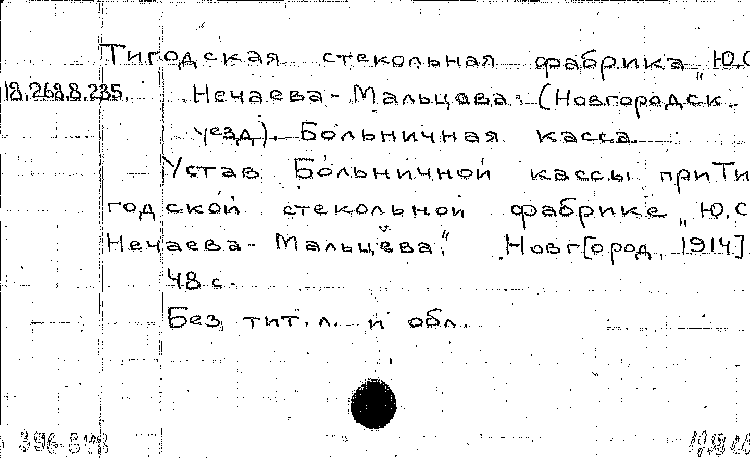 Тигодская стекольная фабрика „Ю.С
18.268.8.235. Нечаева-Мальцева. (Новгородск.
уезд). Больничная касса.
Устав Больничной кассы при Ти
годской стекольной фабрике „Ю.С
Нечаева-Мальцева". Новг[ород, 1914]
48 с.
Без тит. л. и обл.